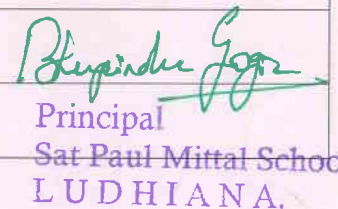 Bhupinder Gogia
Principal
Sat Paul Mittal Schoo
LUDHIANA.